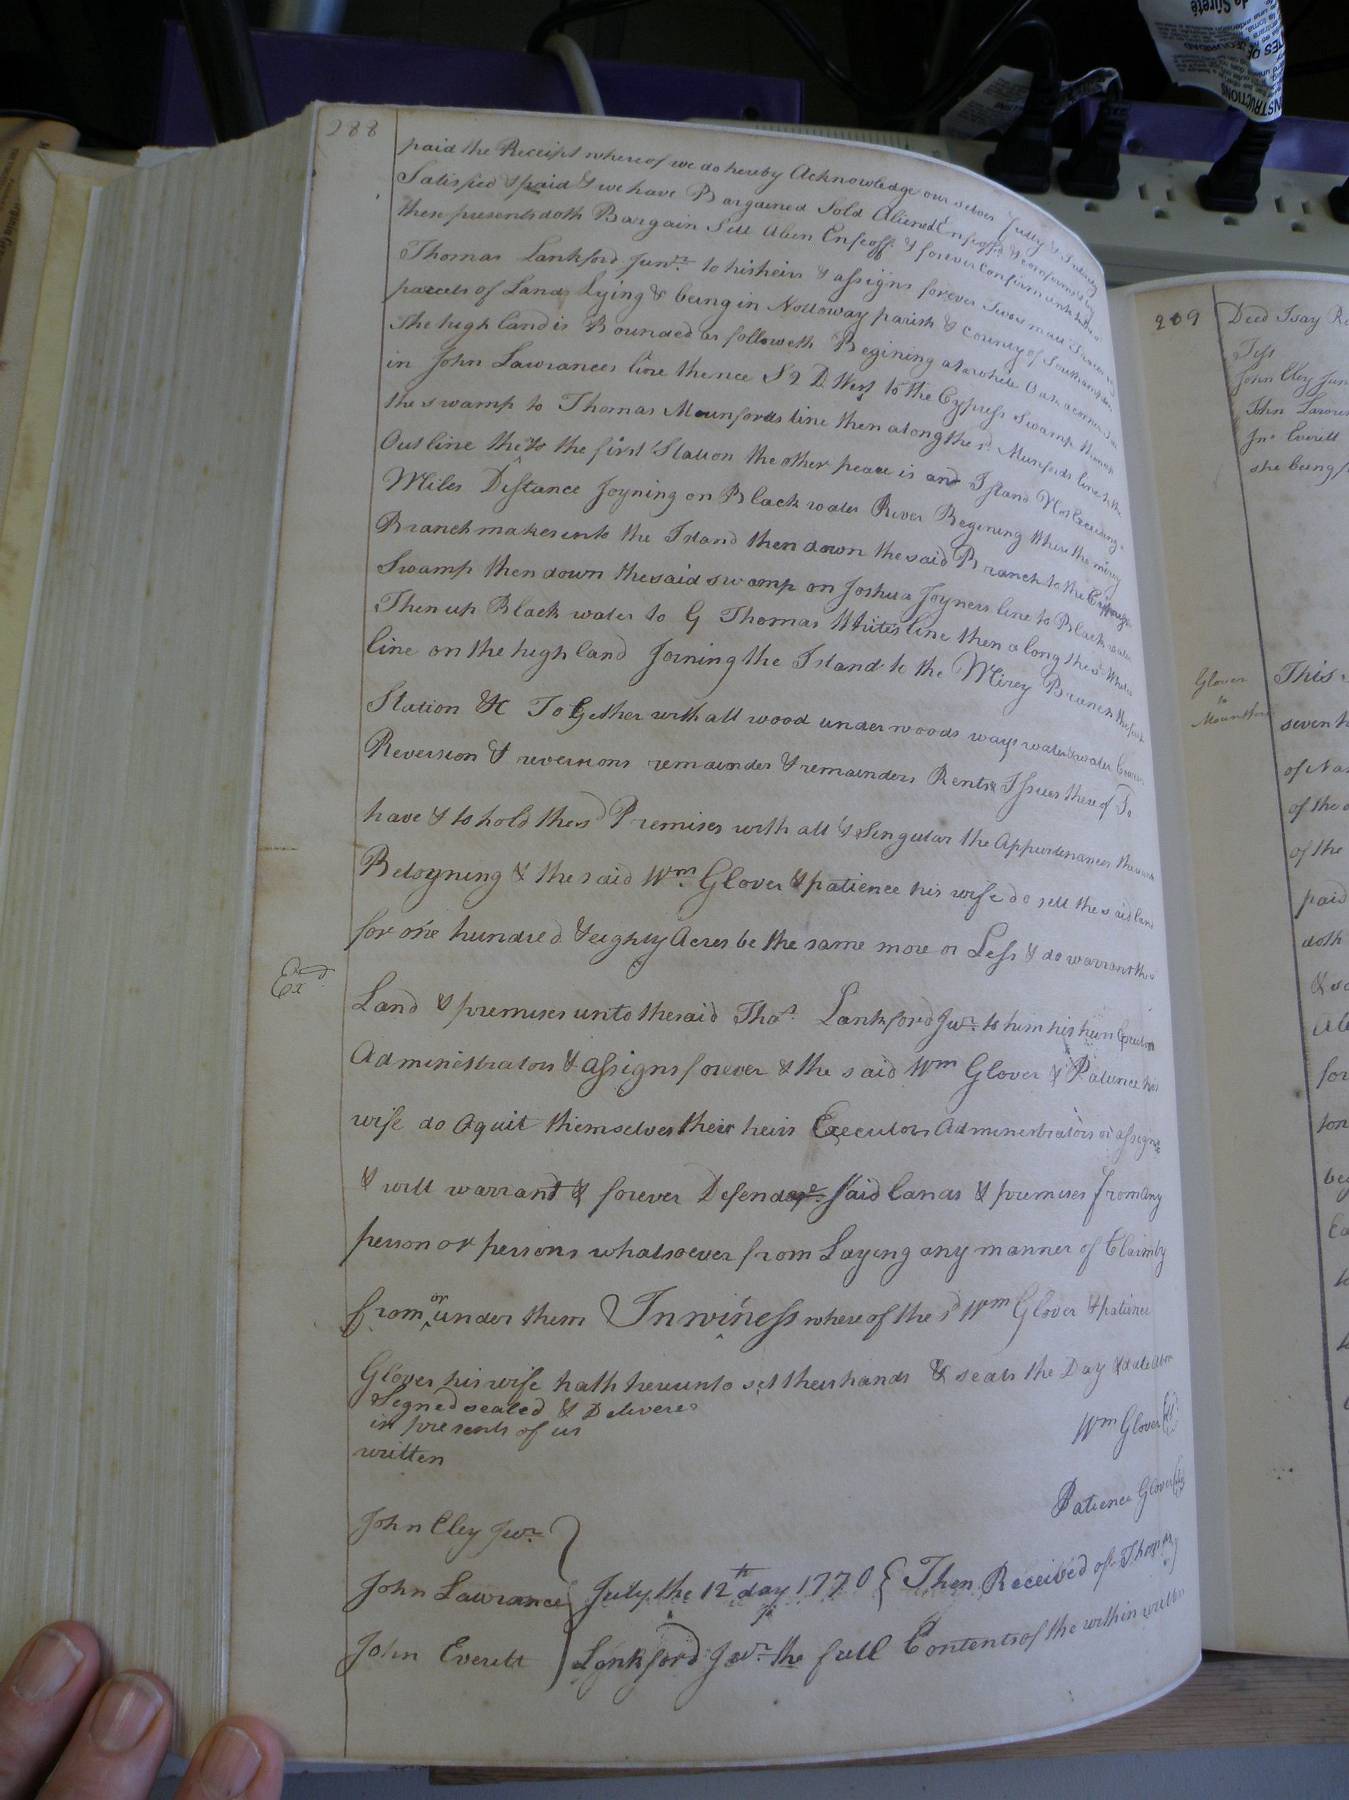 288
paid the Receipt whereof we do hereby Acknowledge our selves fully &
Satisfied & paid & we have Bargained Sold Aliened Enfeoffd & conformed by
these presents doth Bargain Sell Alien Enfeoff & forever Confirm unto
Thomas Lankford Junr. to his heirs & assigns forever Two small Tracts or
parcels of Land Lying & being in Nottoway parish & County of Southampton
The high land is Bounded as followeth Begining at a white Oak a corner
in John Lawrances line thence S 9 D West to the Cypress Swamp then up
the swamp to Thomas Mounfords line then along the sd. Munfords line to the
Out line then to the first Station the other peace is and Island Not Exceeding
Miles Distance Joyning on Black water River Begining where the mirey
Branch makes into the Island then down the said Branch to the Cypress
Swamp then down the said swamp on Joshua Joyners line to Black water
Then up Black water to G Thomas Whites line then along the sd. Whites
line on the high land Joining the Island to the Mirey Branch the first
Station &c To Gether with all wood under woods ways water & water Courses
Reversion & reversions remainder & remainders Rents & Issues there of To
have & to hold the sd Premises with all & Singular the Appurtenances
Beloyning & the said Wm. Glover & patience his wife do sell the said land
for one hundred & eighty Acres be the same more or Less & do warrant the
Exd.
Land & premises unto the said Thos. Lankford Junr. to him his heirs Executors
Administrators & assigns forever & the said Wm Glover & Patience his
wife do aquit themselves their heirs Executors Administrators or assigns
& will warrant & forever Defend said lands & premises from any
person or persons whatsoever from Laying any manner of Claim by
from or under them In winess where of the sd Wm Glover & patience
Glover his wife hath hereunto set their hands & seals the Day & date above
Segned sealed & Delivered
in presents of us
written
Wm Glover
Patience Glover
John Cley Junr.
John Lawrance
John Everett
July the 12th day 1770 Then Received of Thomas
Lankford Junr. the full Contents of the within written
289
Deed Isay
Test
John Cley Jun
John Lawran
Jno Everett
she being
Glover
to
Mountfor
This
seven h
of Na
of the
of the
paid
doth
for